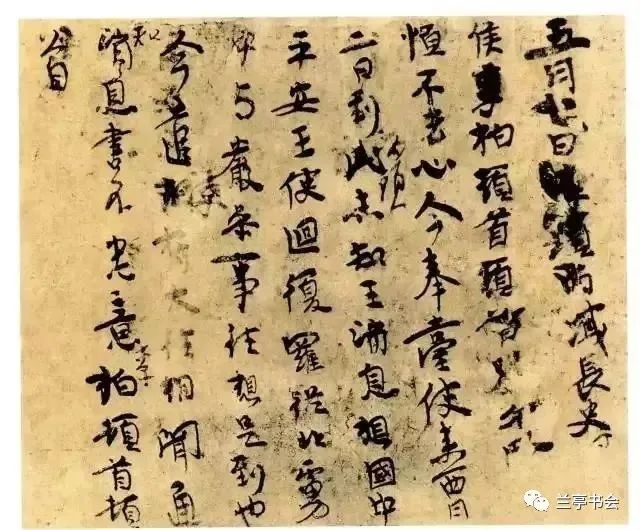 五月七日 西域長史
侯 柏頓首頓首別
恒不去心今奉臺使來西月
二日到此未知王消息想國中
平安王使迴復羅從北虜
中與嚴參事往想是到也
今遣使符大往相聞通
知消息書不悉意李柏頓首頓
首
兰亭书会